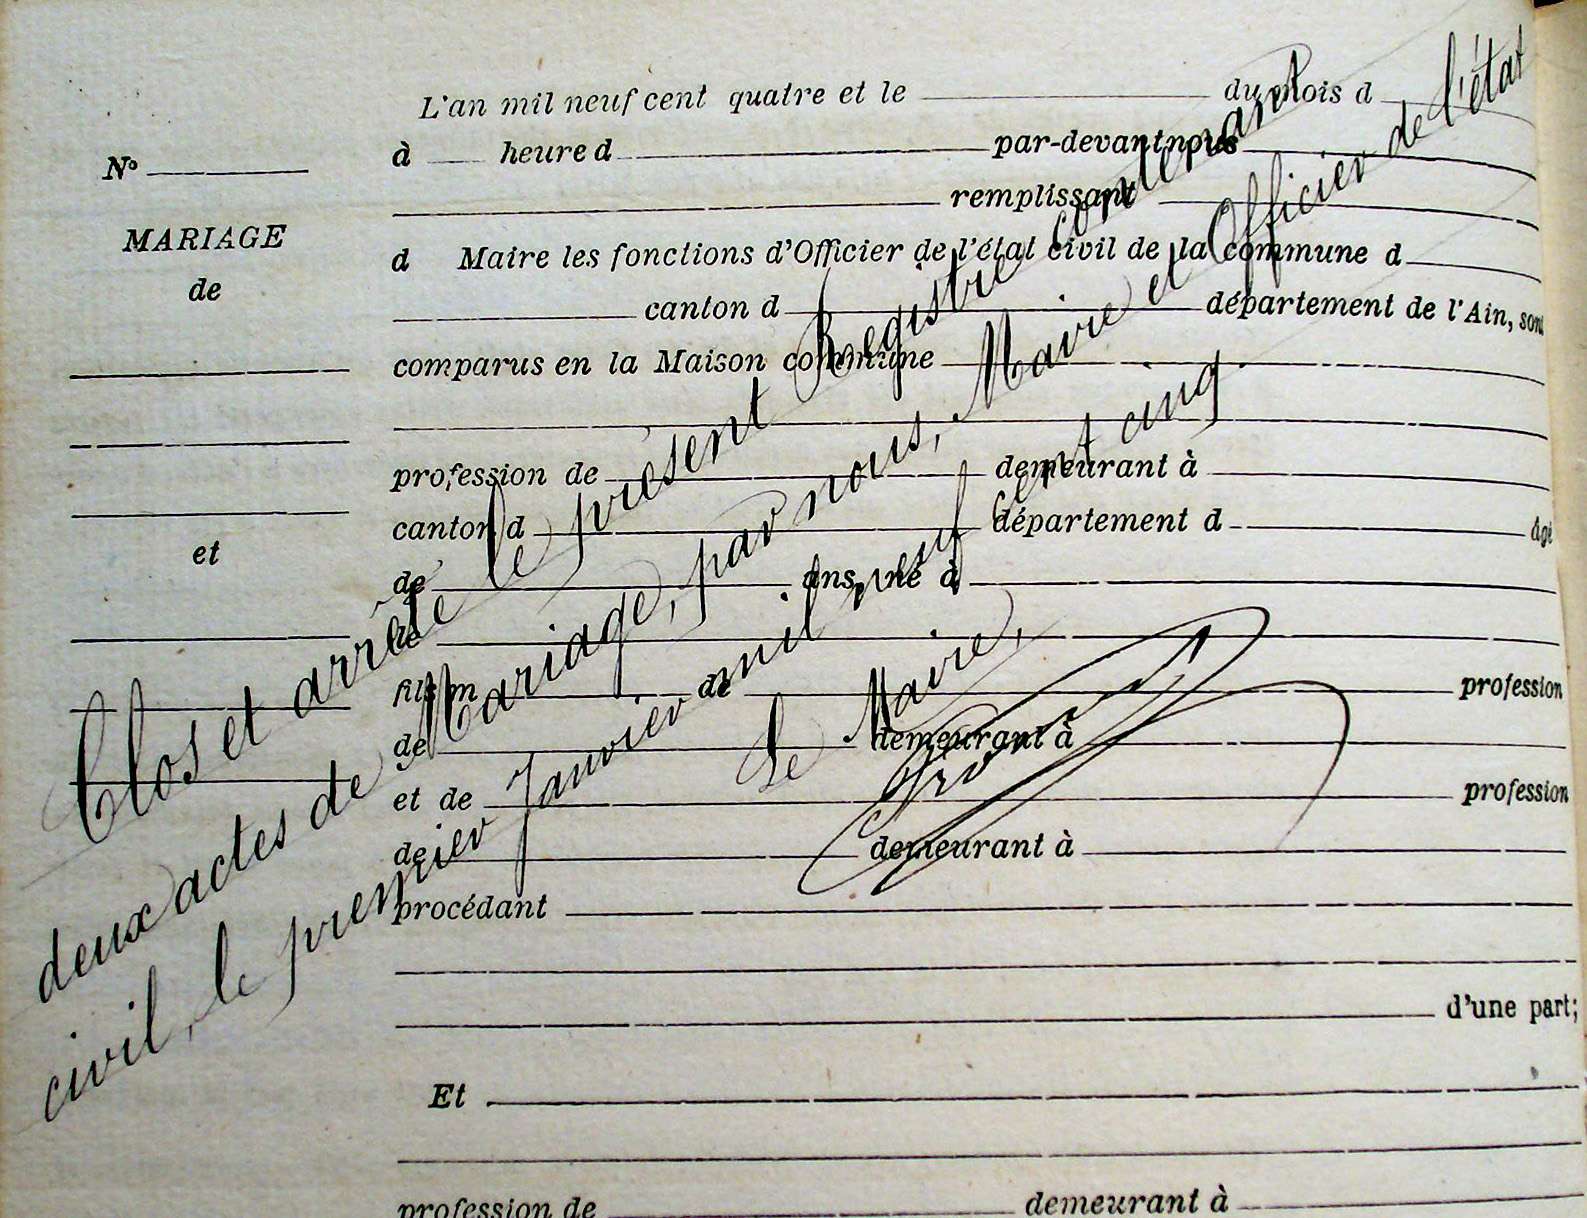 L'an mil neuf cent quatre et le du mois d
à heure d par-devant nous
N°
remplissant
MARIAGE
d Maire les fonctions d'Officier de l'état civil de la commune d
de
canton d département de l'Ain, sont
comparus en la Maison commune
profession de demeurant à
canton d département d âgé
et
de ans, né à
le
fils m de profession
de demeurant à
et de profession
de demeurant à
procédant
d'une part;
Et
profession de demeurant à
Clos et arrêté le présent Registre contenant
deux actes de Mariage, par nous, Maire et Officier de l'état
civil, le premier Janvier mil neuf cent cinq.
Le Maire,